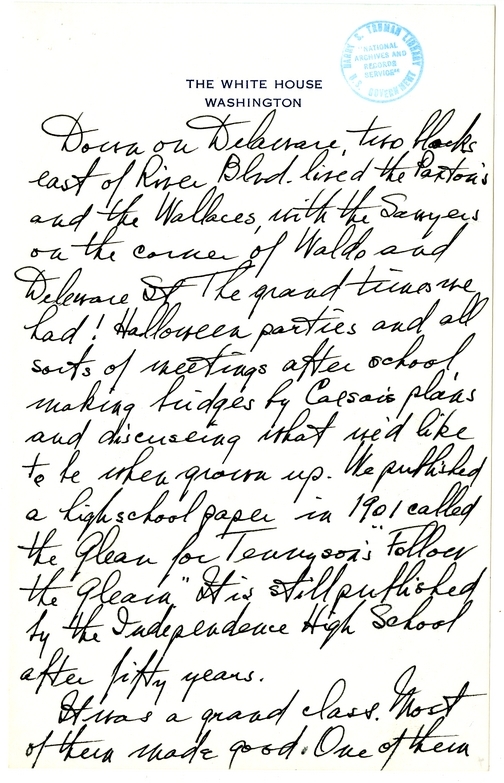 HARRY S. TRUMAN LIBRARY
"NATIONAL
ARCHIVES AND
RECORDS
SERVICE"
U.S. GOVERNMENT
THE WHITE HOUSE
WASHINGTON
Down on Delaware, two blocks
east of River Blvd. lived the Paxton's
and the Wallaces, with the Sawyers
on the corner of Waldo and
Deleware St. The grand times we
had! Halloween parties and all
sorts of meetings after school,
making bridges by Caesar's plans
and discussing what we'd like
to be when grown up. We published
a high school paper in 1901 called
the "Gleam" for Tennyson's "Follow
the Gleam." It is still published
by the Independence High School
after fifty years.
It was a grand class. Most
of them made good. One of them